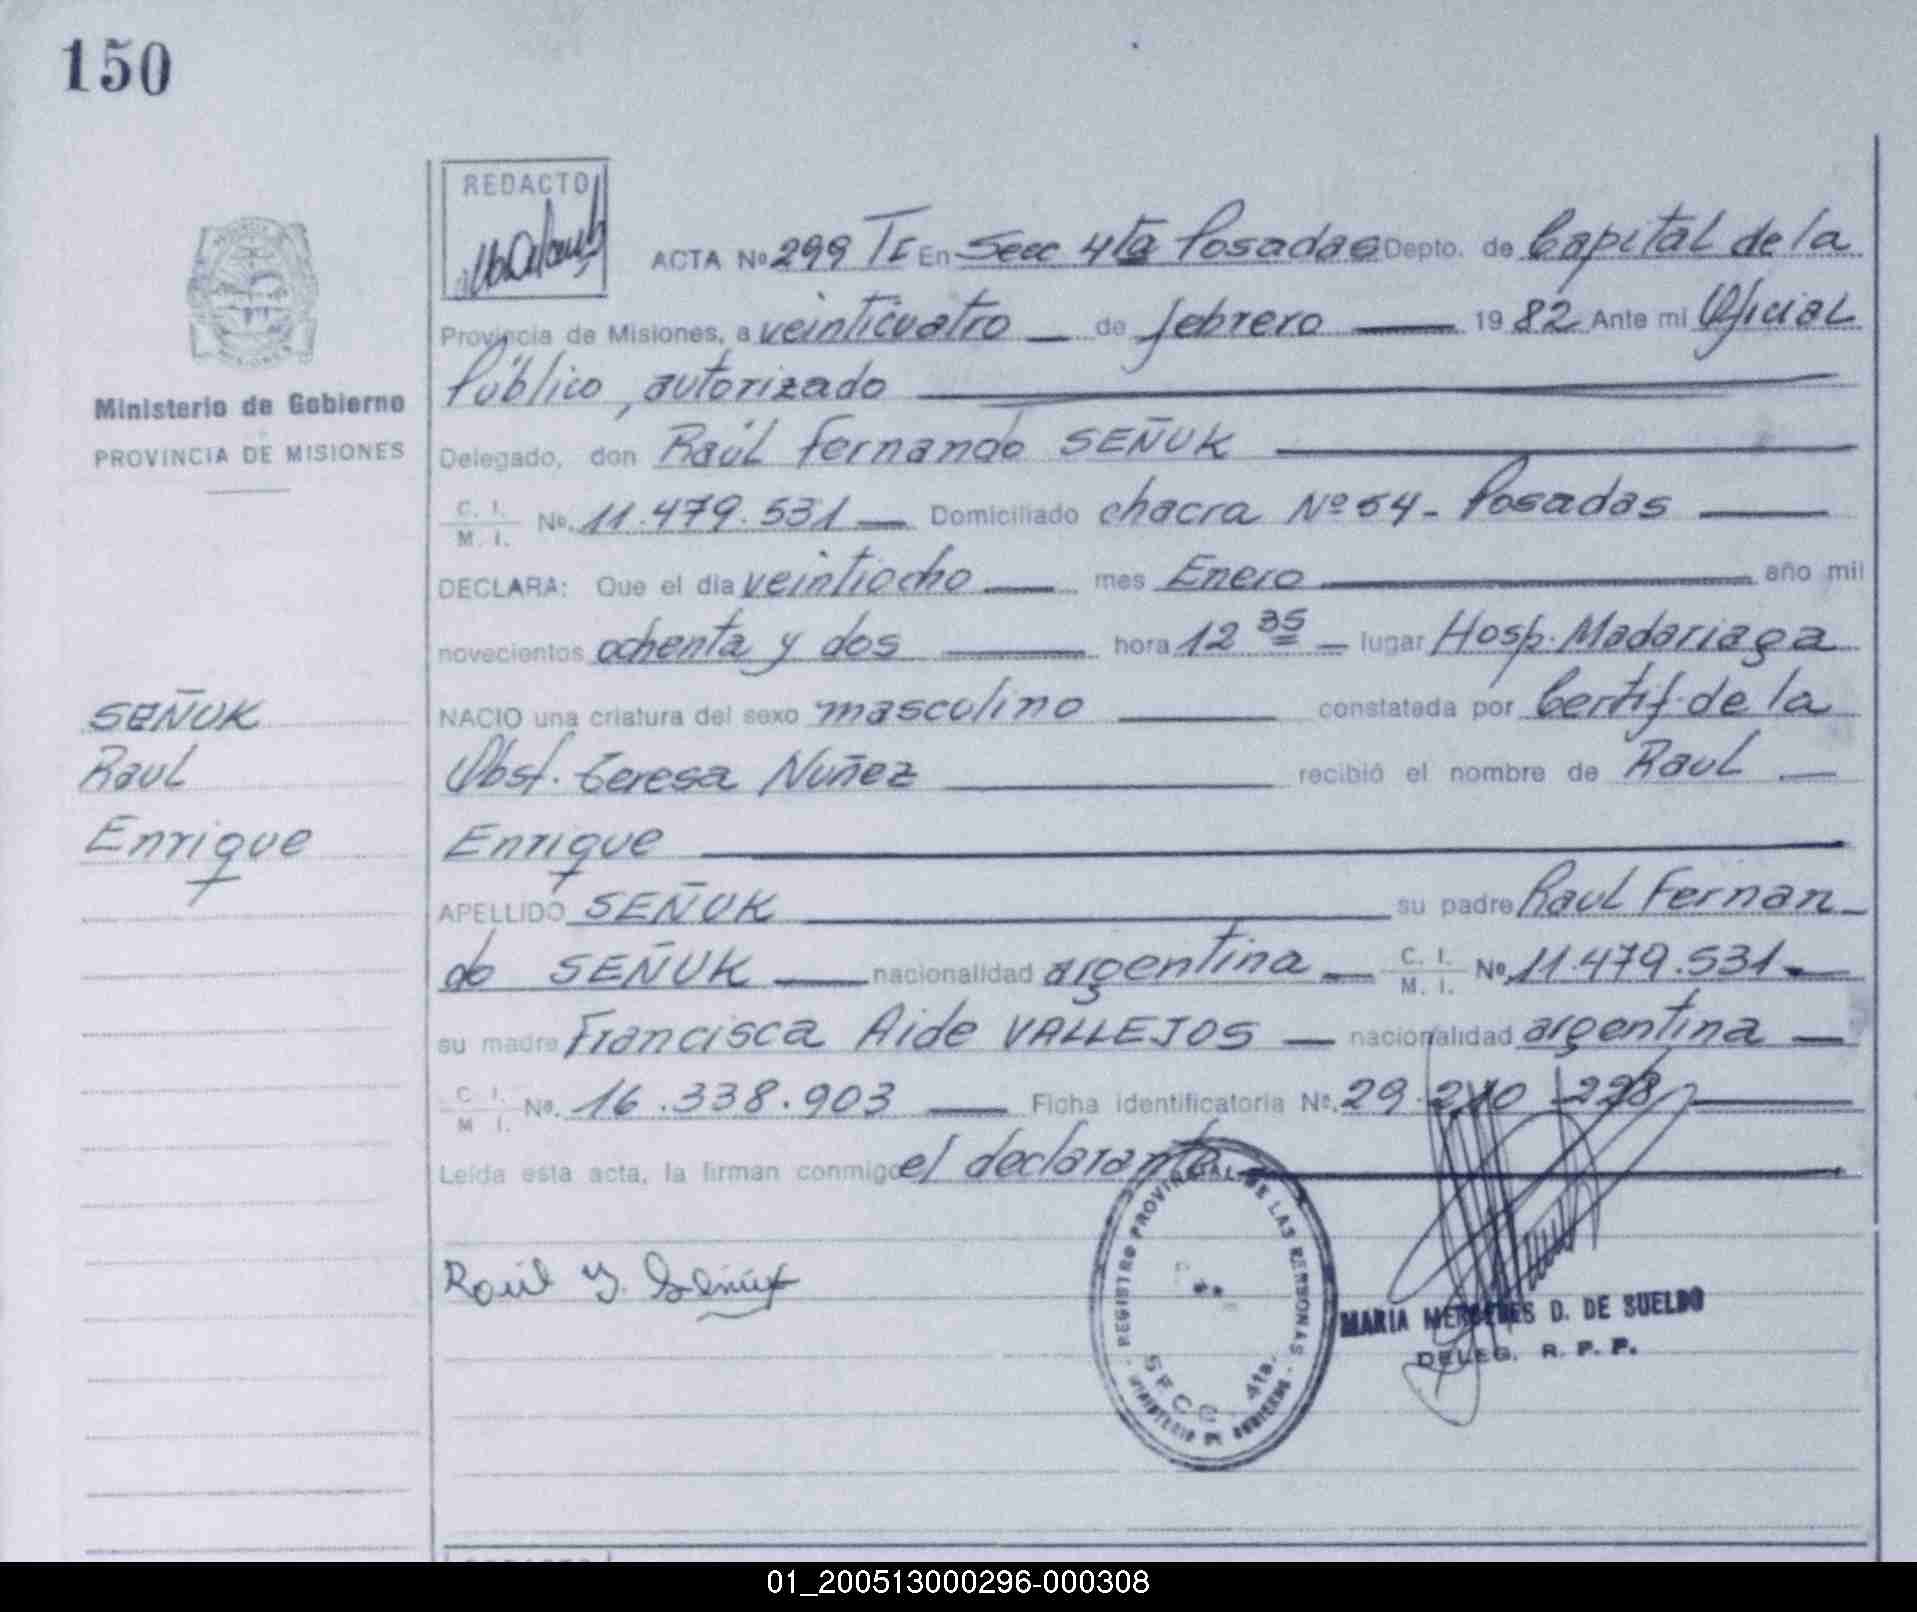 150
REDACTO
ACTA Nº 299 TI En Secc 4ta Posadas Depto. de Capital de la
Provincia de Misiones, a veinticuatro — de febrero — 1982 Ante mi Oficial
Ministerio de Gobierno
PROVINCIA DE MISIONES
Público, autorizado
Delegado, don Raúl Fernando SEÑUK
C. I. M. I. Nº. 11.479.531 — Domiciliado chacra Nº 54 - Posadas —
DECLARA: Que el dia veintiocho — mes Enero — año mil
novecientos ochenta y dos — hora 12 35 — lugar Hosp. Madariaga
SEÑUK
Raul
Enrique
NACIO una criatura del sexo masculino — constatada por Certif. de la
Obst. Teresa Nuñez — recibió el nombre de Raul —
Enrique
APELLIDO SEÑUK — su padre Raul Fernan-
do SEÑUK — nacionalidad argentina — C. I. M. I. Nº 11.479.531 —
su madre Francisca Aide VALLEJOS — nacionalidad argentina —
C. I. M. I. Nº. 16.338.903 — Ficha identificatoria Nº. 29.210.228 —
Leída esta acta, la firman conmigo el declarante
Raúl F. Señuk
REGISTRO PROVINCIAL DE LAS PERSONAS
SECC. 4ta.
MINISTERIO DE GOBIERNO
MARIA MERCEDES D. DE SUELDO
DELEG. R. P. P.
01_200513000296-000308